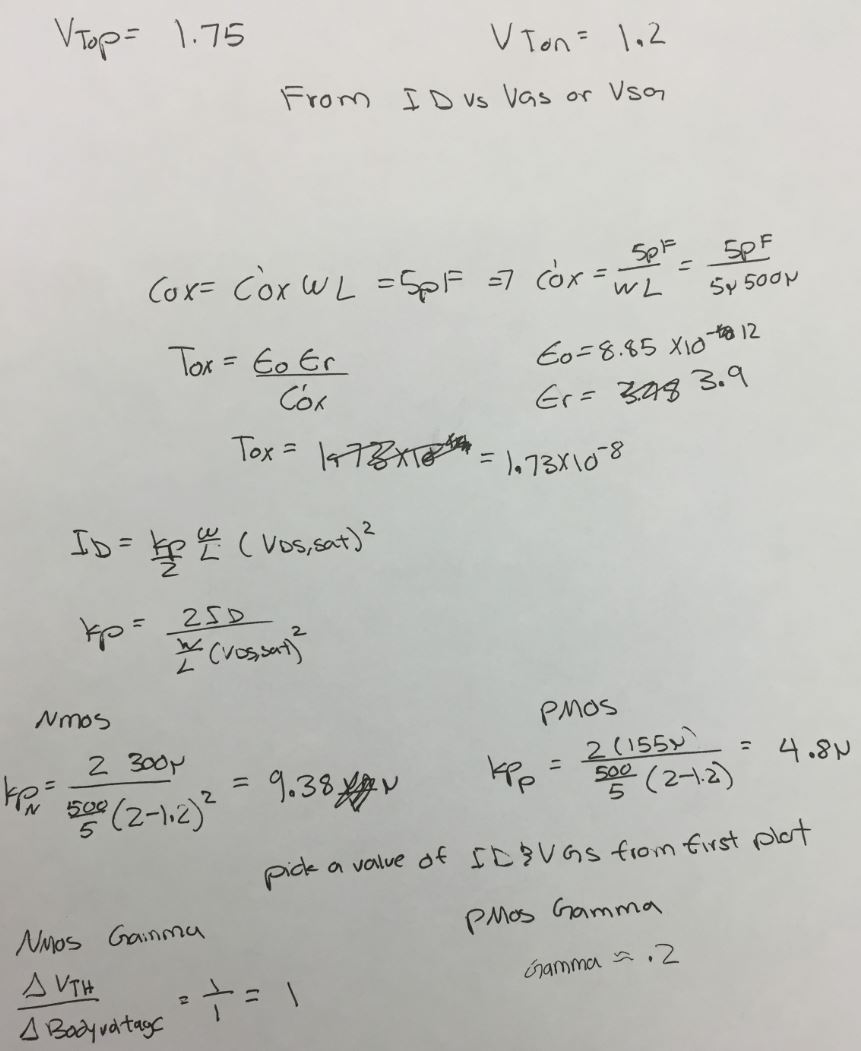 VTop = 1.75 VTon = 1.2
From ID vs VGS or VSG
Cox = C'ox W L = 5pF => C'ox = 5pF / WL = 5pF / 5μ 500μ
Tox = ϵo ϵr / C'ox ϵo = 8.85 x10^-12
ϵr = 3.9
Tox = = 1.73x10^-8
ID = kp/2 W/L (VDS,sat)^2
kp = 2ID / W/L (VDS,sat)^2
Nmos PMOS
kpN = 2 300μ / 500/5 (2-1.2)^2 = 9.38 μ kpp = 2(155μ) / 500/5 (2-1.2) = 4.8μ
pick a value of ID & VGS from first plot
NMOS Gamma PMos Gamma
ΔVTH / Δ Bodyvoltage = 1/1 = 1 Gamma ≈ .2